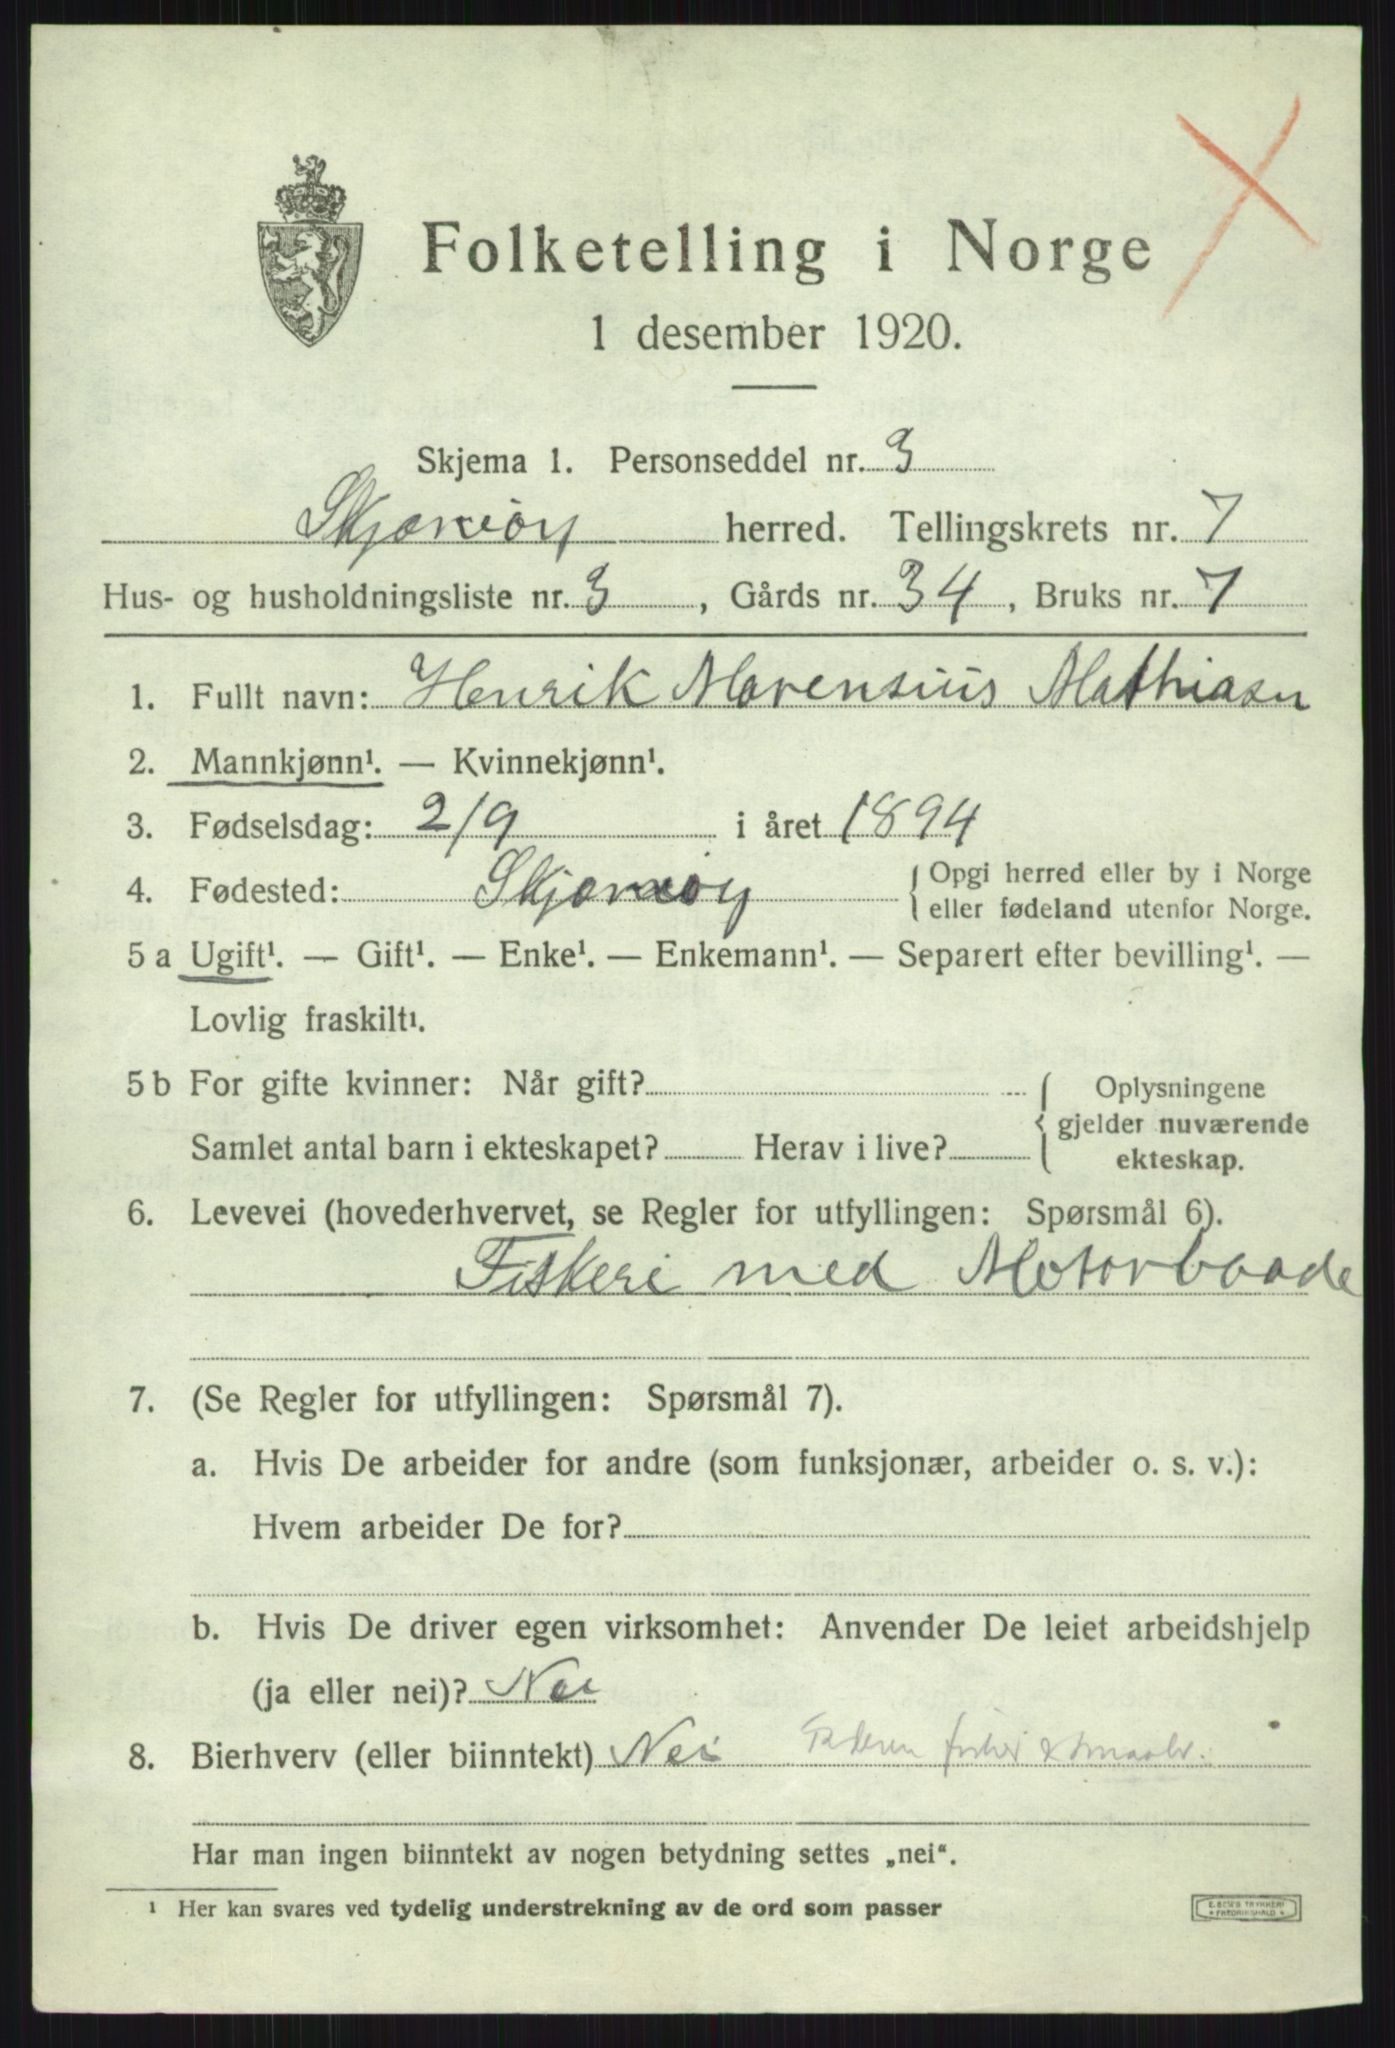 Folketelling i Norge
1 desember 1920.
Skjema 1. Personseddel nr. 3
Skjærvöy herred. Tellingskrets nr. 7
Hus- og husholdningsliste nr. 3, Gårds nr. 34, Bruks nr. 7
1. Fullt navn: Henrik Marensius Mathiasn
2. Mannkjønn¹. — Kvinnekjønn¹.
3. Fødselsdag: 2/9 i året 1894
4. Fødested: Skjærvöy { Opgi herred eller by i Norge
eller fødeland utenfor Norge.
5 a Ugift¹. — Gift¹. — Enke¹. — Enkemann¹. — Separert efter bevilling¹. —
Lovlig fraskilt¹.
5 b For gifte kvinner: Når gift? Oplysningene
gjelder nuværende
Samlet antal barn i ekteskapet? Herav i live?
ekteskap.
6. Levevei (hovederhvervet, se Regler for utfyllingen: Spørsmål 6).
Fiskeri med Motorbaade
7. (Se Regler for utfyllingen: Spørsmål 7).
a. Hvis De arbeider for andre (som funksjonær, arbeider o. s. v.):
Hvem arbeider De for?
b. Hvis De driver egen virksomhet: Anvender De leiet arbeidshjelp
(ja eller nei)? Nei
8. Bierhverv (eller biinntekt) Nei Faderen fisker &
Har man ingen biinntekt av nogen betydning settes „nei“.
¹ Her kan svares ved tydelig understrekning av de ord som passer
E. SEMS TRYKKERI
FREDRIKSHALD